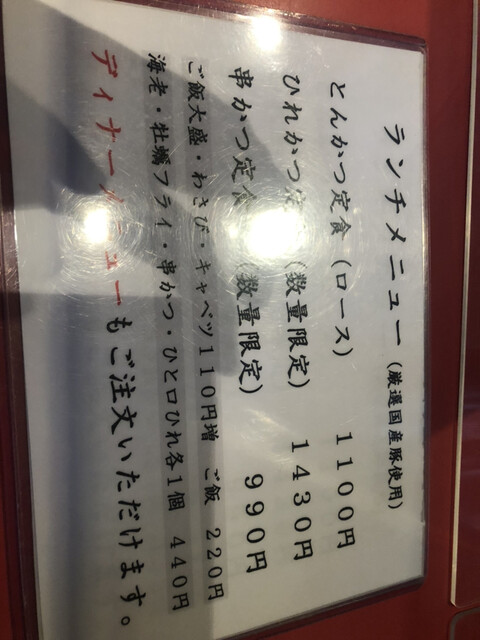 ランチメニュー（厳選国産豚使用）
とんかつ定食（ロース） １１００円
ひれかつ定（数量限定） １４３０円
串かつ定食（数量限定） ９９０円
ご飯大盛・わさび・キャベツ１１０円増 ご飯 ２２０円
海老・牡蠣フライ・串かつ・ひと口ひれ各１個 ４４０円
ディナーメニューもご注文いただけます。